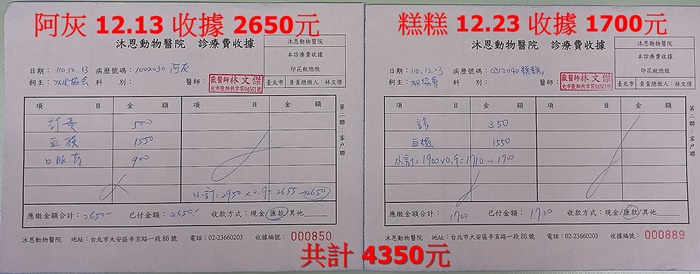 阿灰 12.13 收據 2650元
沐恩動物醫院 診療費收據
沐恩動物醫院
本診療費收據
印花稅總繳
臺北市 負責總繳人:林文傑
日期: 110.12.13 病歷號碼: 1002030 阿灰
飼主: 科別: 醫師: 獸醫師 林文傑
項目 金額 項目 金額
診費 500
血檢 1550
900
小計:2950×0.9=2655→2650
應繳金額合計: 2650- 已付金額: 2650- 收款方式:現金/匯款/其他
第二聯:客戶聯
沐恩動物醫院 地址:台北市大安區辛亥路一段86號 電話:02-23660203 收據編號: 000850
糕糕 12.23 收據 1700元
沐恩動物醫院 診療費收據
沐恩動物醫院
本診療費收據
印花稅總繳
臺北市 負責總繳人:林文傑
日期: 110.12.13 病歷號碼: 糕糕
飼主: 科別: 醫師: 獸醫師 林文傑
項目 金額 項目 金額
診 350
血檢 1550
小計:1900×0.9=1710→1700
應繳金額合計: 1700 已付金額: 1700 收款方式:現金/匯款/其他
第二聯:客戶聯
沐恩動物醫院 地址:台北市大安區辛亥路一段86號 電話:02-23660203 收據編號: 000889
共計 4350元